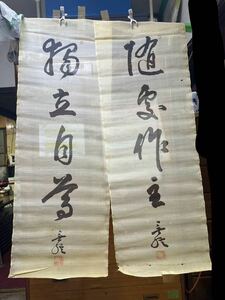 随處作主
獨立自尊